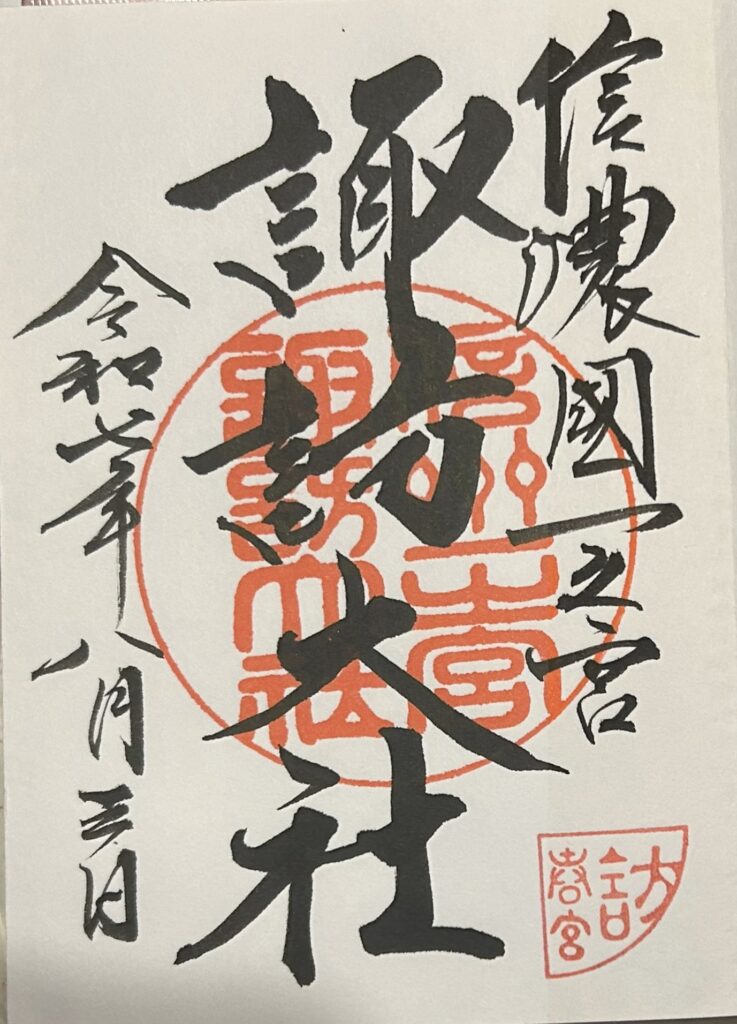 信濃國一之宮
諏訪大社
令和七年八月三日
信州一之宮
諏訪大社
訪
春宮